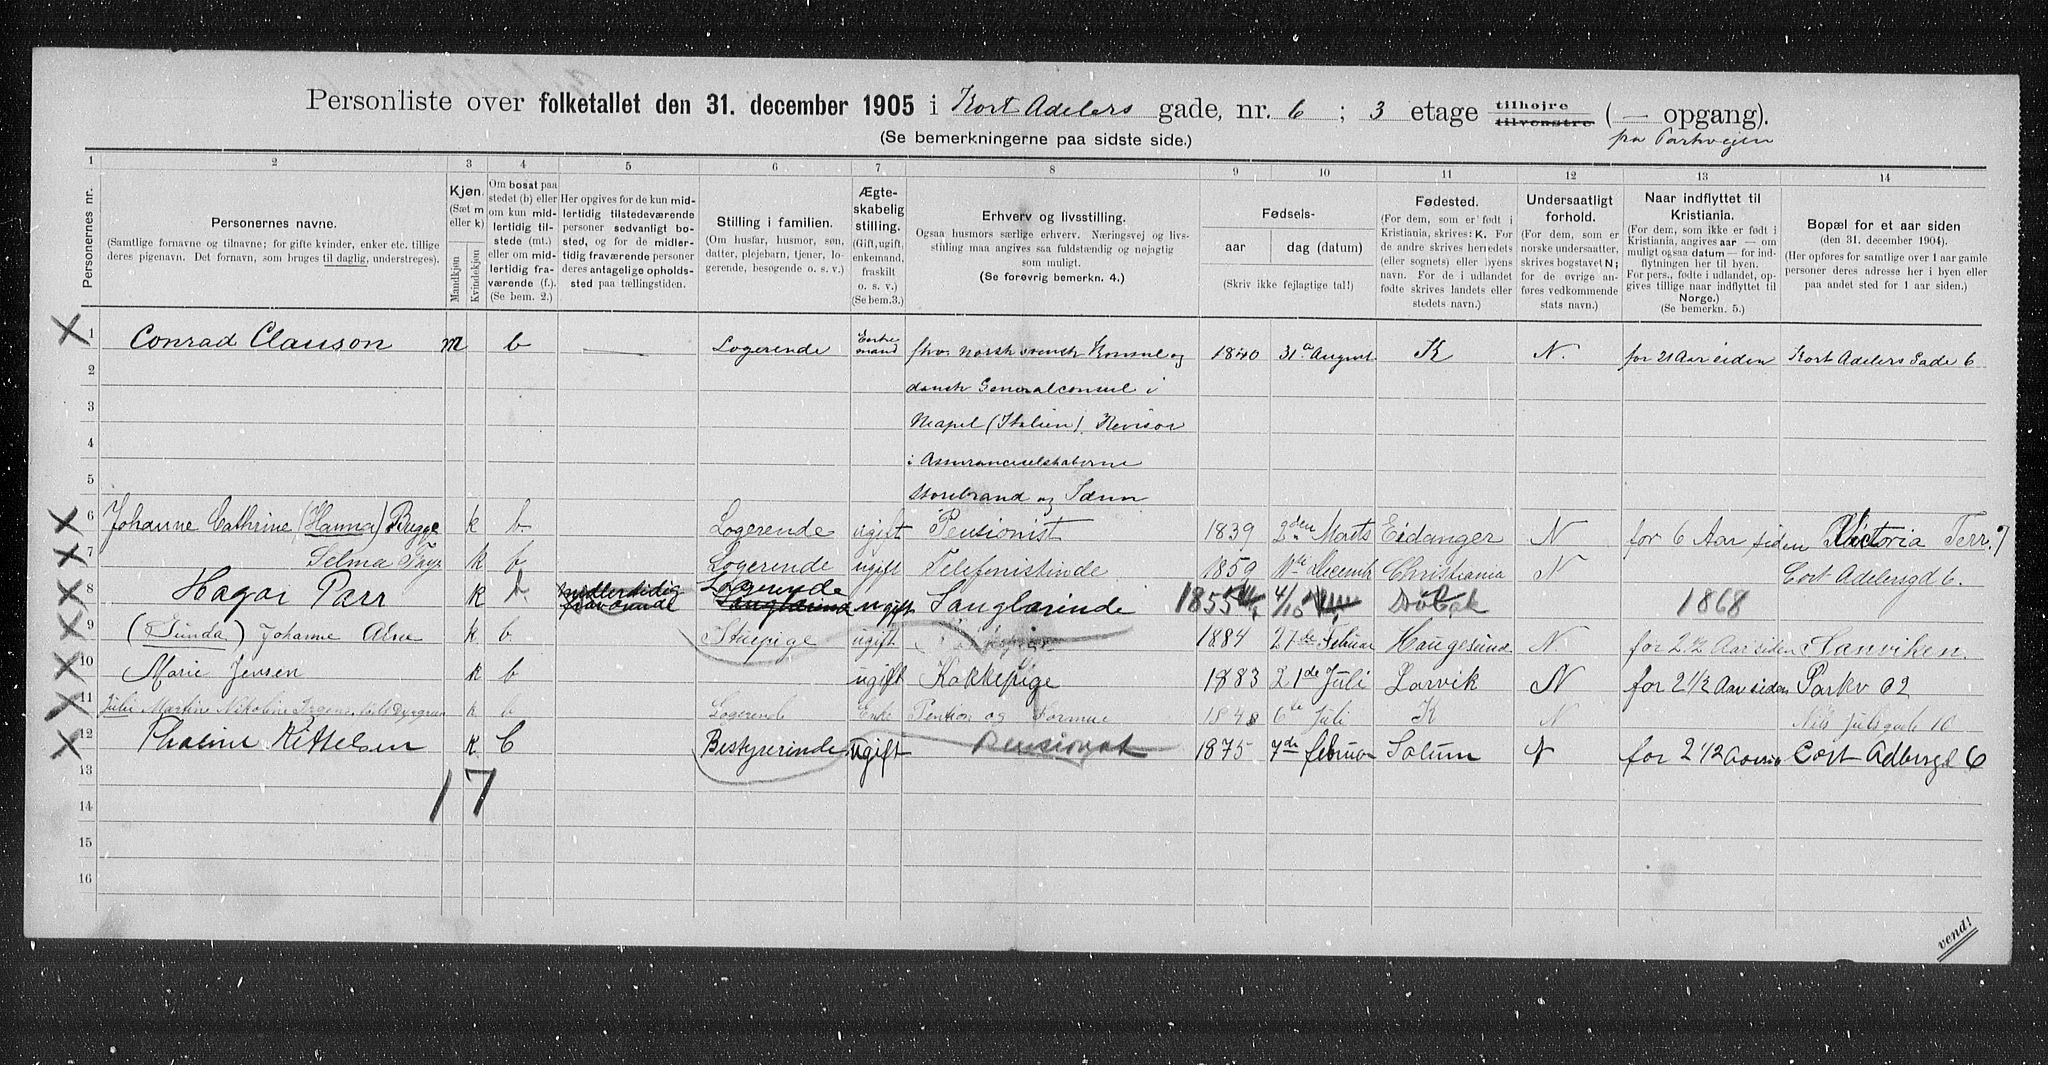 Personliste over folketallet den 31. december 1905 i Kort Adelers gade, nr. 6 ; 3 etage tilhøjre tilvenstre ( — opgang).
(Se bemerkningerne paa sidste side.)
fra Parkvejen
1 2 3 4 5 6 7 8 9 10 11 12 13 14
Personernes nr.
Personernes navne.
(Samtlige fornavne og tilnavne; for gifte kvinder, enker etc. tillige deres pigenavn. Det fornavn, som bruges til daglig, understreges).
Kjøn.
(Sæt m eller k)
Mandkjøn
Kvindekjøn
Om bosat paa stedet (b) eller om kun midlertidig tilstede (mt.) eller om midlertidig fraværende (f.). (Se bem. 2.)
Her opgives for de kun midlertidig tilstedeværende personer sedvanligt bosted, og for de midlertidig fraværende personer deres antagelige opholdssted paa tællingstiden.
Stilling i familien.
(Om husfar, husmor, søn, datter, plejebarn, tjener, logerende, besøgende o. s. v.)
Ægteskabelig stilling.
(Gift, ugift, enkemand, fraskilt o. s. v.)
(Se bem.3.)
Erhverv og livsstilling.
Ogsaa husmors særlige erhverv. Næringsvej og livsstilling maa angives saa fuldstændig og nøjagtig som muligt.
(Se forøvrig bemerkn. 4.)
Fødsels-
aar
dag (datum)
(Skriv ikke fejlagtige tal!)
Fødested.
(For dem, som er født i Kristiania, skrives: K. For de andre skrives herredets (eller sognets) eller byens navn. For de i udlandet fødte skrives landets eller stedets navn.)
Undersaatligt forhold.
(For dem, som er norske undersaatter, skrives bogstavet N; for de øvrige anføres vedkommende stats navn.)
Naar indflyttet til Kristiania.
(For dem, som ikke er født i Kristiania, angives aar — om muligt ogsaa datum — for indflytningen til byen. For pers., fødte i udlandet, opgives tillige naar indflyttet til Norge.)
(Se bemerkn. 5.)
Bopæl for et aar siden
(den 31. december 1904).
(Her opføres for samtlige over 1 aar gamle personer deres adresse her i byen eller paa andet sted for 1 aar siden.)
X 1 Conrad Clauson m b — Logerende Enkemand fhv. norsk svensk Konsul og 1840 31te August K N. for 21 Aar siden Kort Adelers Gade 6
2 dansk Generalconsul i
3 Neapel (Italien). Revisor
4 i Assuranceselskaberne
5 Storebrand og Idun
X 6 Johanne Cathrine (Hanna) Bugge k b Logerende ugift Pensionist 1839 2den Marts Eidanger N for 6 Aar siden Victoria Terr. 7
X 7 Selma k b Logerende ugift Telefonistinde 1859 11te Decemb Christiania N Cort Adelersgd 6.
X 8 Hagar Parr k b midlertidig fraværende Logerende Sanglærinde ugift Sanglærinde 1855 4/10 Drøbak 1868
X 9 (Sunda) Johanne k b Stuepige ugift 1884 27de Februar Haugesund N. for 2 1/2 Aar siden Sanviken.
X 10 Marie Jensen k b ugift Kokkepige 1883 21de Juli Larvik N for 2 1/2 Aar siden Parkv 62
X 11 Julie Martine Nikoline k b Logerende Enke Pension og Formue 1848 6te Juli K N Nils Julsgade 10
X 12 Thaline Kittelsen k b Bestyrerinde ugift Pensionat 1875 7de februar Solum N for 2 1/2 Aar Cort Adlersgd 6
13
17
14
15
16
vend!